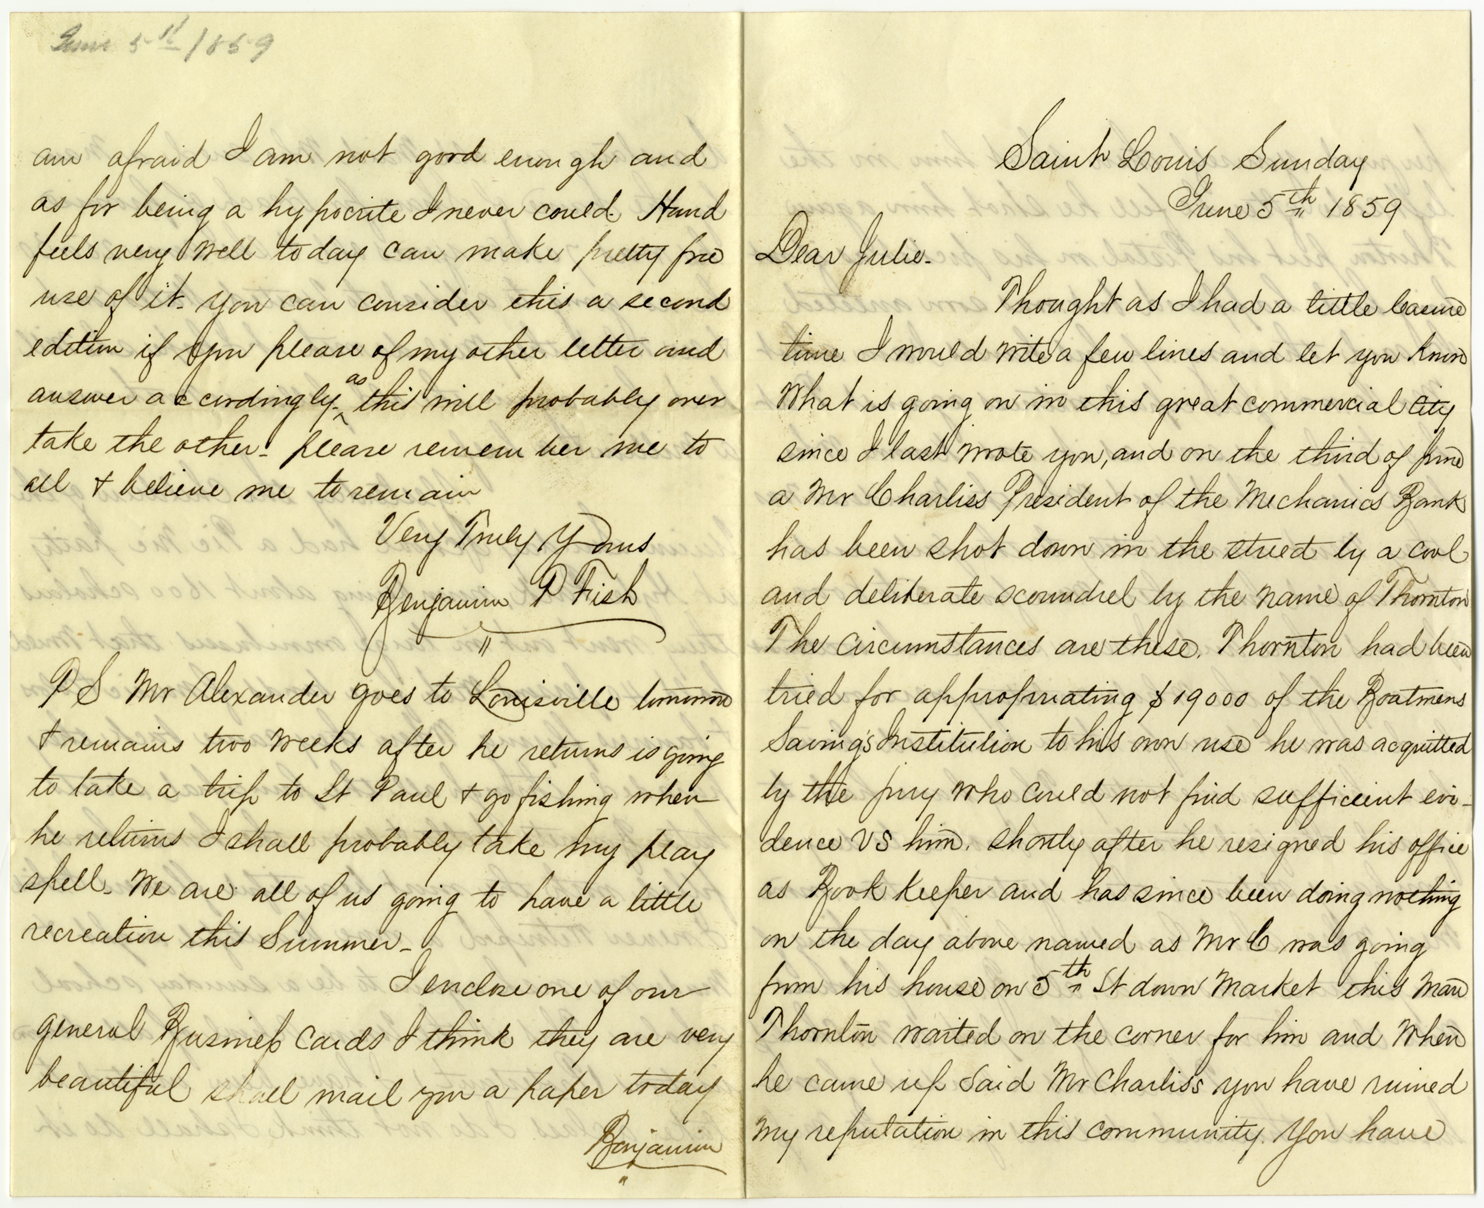 June 5th 1859
am afraid I am not good enough and
as for being a hypocrite I never could. Hand
feels very well today can make pretty free
use of it. you can consider this a second
edition if you please of my other letter and
answer accordingly. as this will probably over
take the other. please remember me to
all & believe me to remain
Very Truly Yours
Benjamin P Fish
P S Mr Alexander goes to Louisville tomorrow
& remains two weeks after he returns is going
to take a trip to St Paul & go fishing when
he returns I shall probably take my play
spell. We are all of us going to have a little
recreation this Summer.
I enclose one of our
general Business Cards I think they are very
beautiful shall mail you a paper today
Benjamin
Saint Louis Sunday
June 5th 1859
Dear Julie.
Thought as I had a little
time I would write a few lines and let you know
What is going on in this great commercial City
since I last wrote you, and on the third of June
a Mr Charliss President of the Mechanics Bank
has been shot down in the street by a cool
and deliberate scoundrel by the name of Thornton
The circumstances are these. Thornton had been
tried for appropriating $19000 of the Boatmens
Saving's Institution to his own use he was acquitted
by the jury who could not find sufficient evi-
dence VS him. shortly after he resigned his office
as Book keeper and has since been doing nothing
on the day above named as Mr C was going
from his house on 5th St down Market this man
Thornton waited on the corner for him and When
he came up said Mr Charliss you have ruined
my reputation in this community. You have